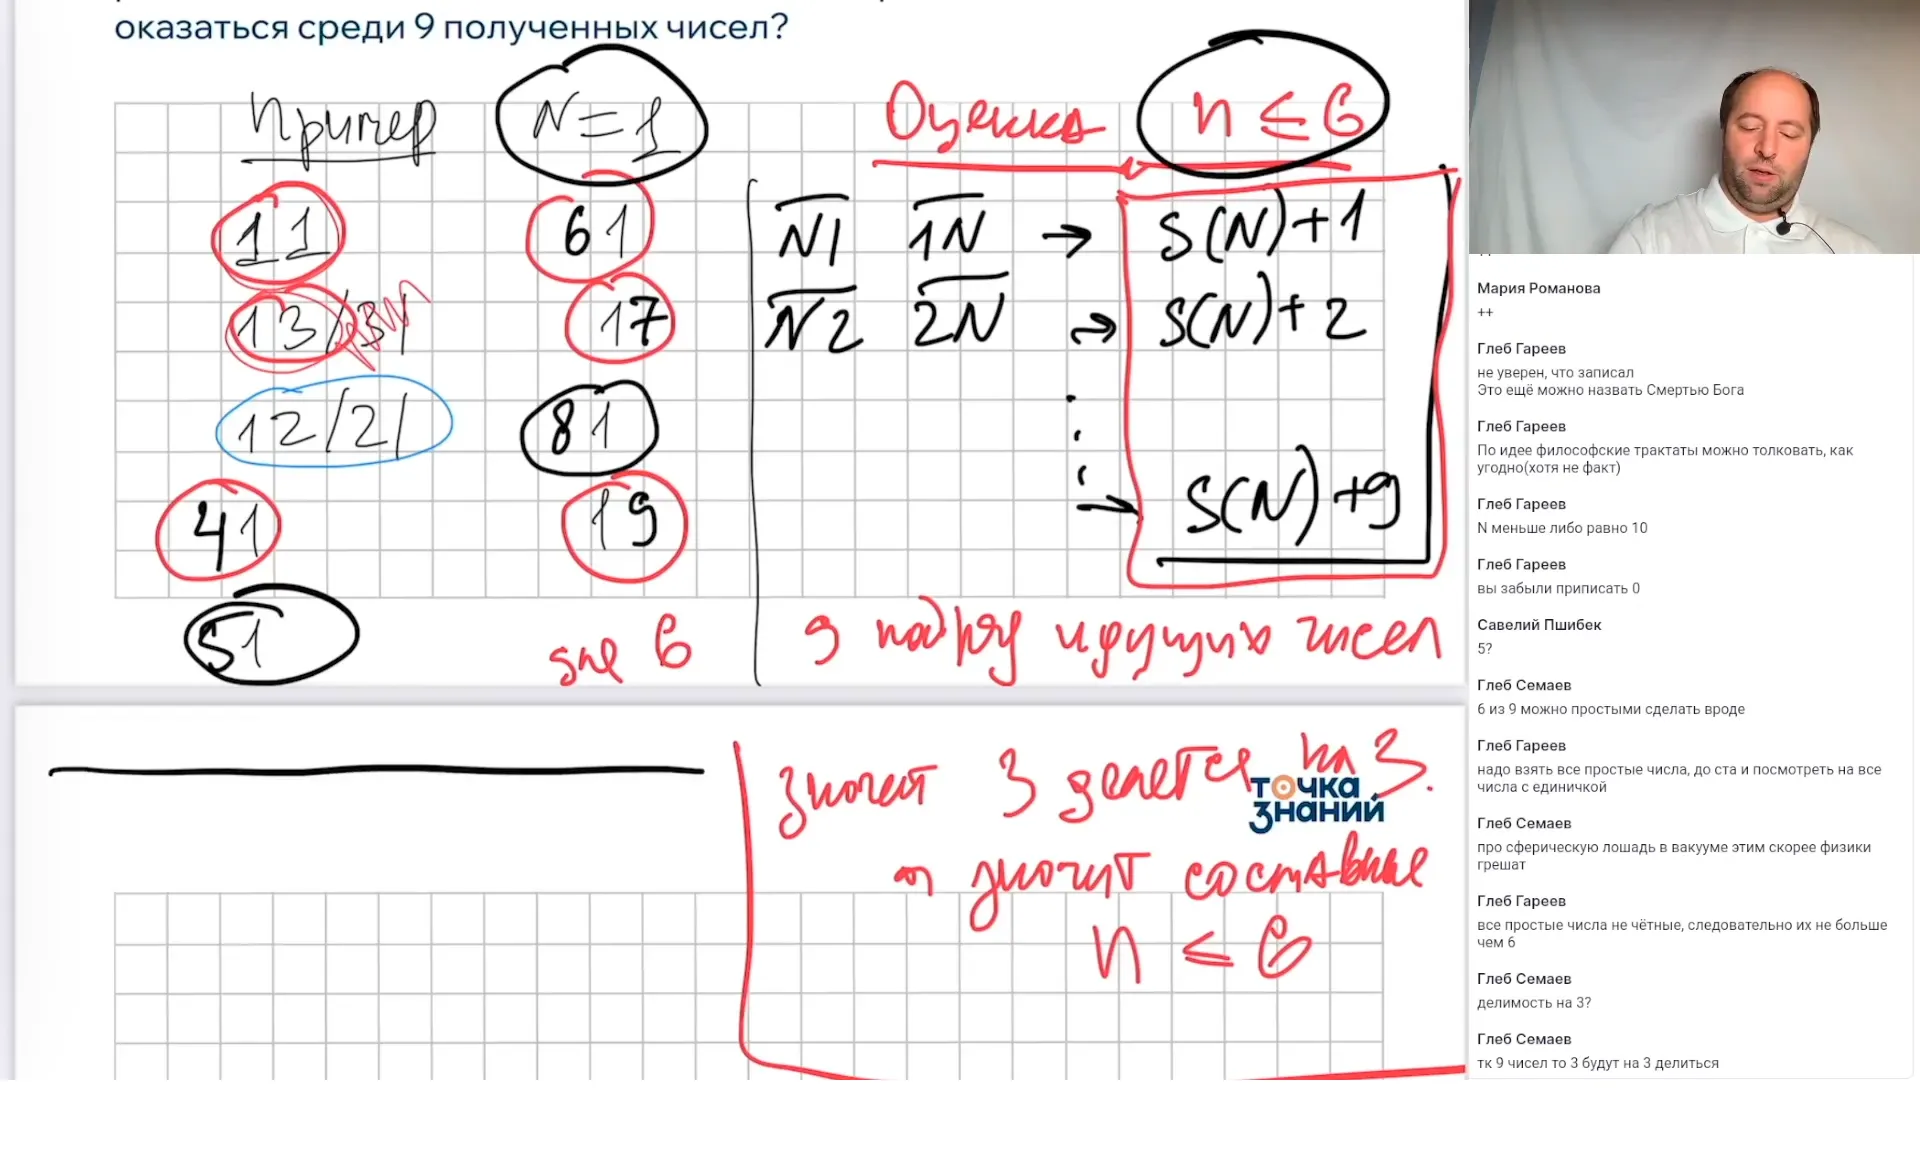 оказаться среди 9 полученных чисел?
Пример N=1
11 61
13/31 17
12/21 81
41 19
51
для 6
Оценка n ≤ 6
N1 1N → S(N)+1
N2 2N → S(N)+2
→ S(N)+9
9 подряд идущих чисел
значит 3 делятся на 3.
значит составные
n ≤ 6
ТОЧКА
ЗНАНИЙ
Мария Романова
++
Глеб Гареев
не уверен, что записал
Это ещё можно назвать Смертью Бога
Глеб Гареев
По идее философские трактаты можно толковать, как
угодно(хотя не факт)
Глеб Гареев
N меньше либо равно 10
Глеб Гареев
вы забыли приписать 0
Савелий Пшибек
5?
Глеб Семаев
6 из 9 можно простыми сделать вроде
Глеб Гареев
надо взять все простые числа, до ста и посмотреть на все
числа с единичкой
Глеб Семаев
про сферическую лошадь в вакууме этим скорее физики
грешат
Глеб Гареев
все простые числа не чётные, следовательно их не больше
чем 6
Глеб Семаев
делимость на 3?
Глеб Семаев
тк 9 чисел то 3 будут на 3 делиться